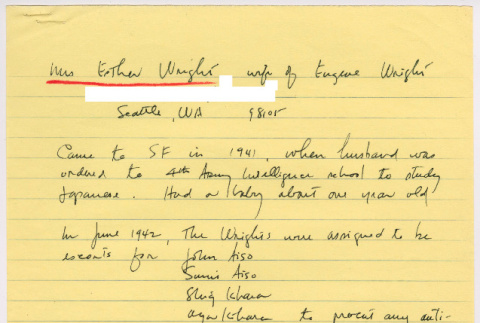 Mrs Esther Wright wife of Eugene Wright
Seattle, WA 98105
Came to SF in 1941, when husband was
ordered to 4th Army Intelligence school to study
Japanese. Had a baby about one year old
In June 1942, The Wrights were assigned to be
escorts for John Aiso
Sumi Aiso
Shig Kihara
Aya Kihara to prevent any anti-